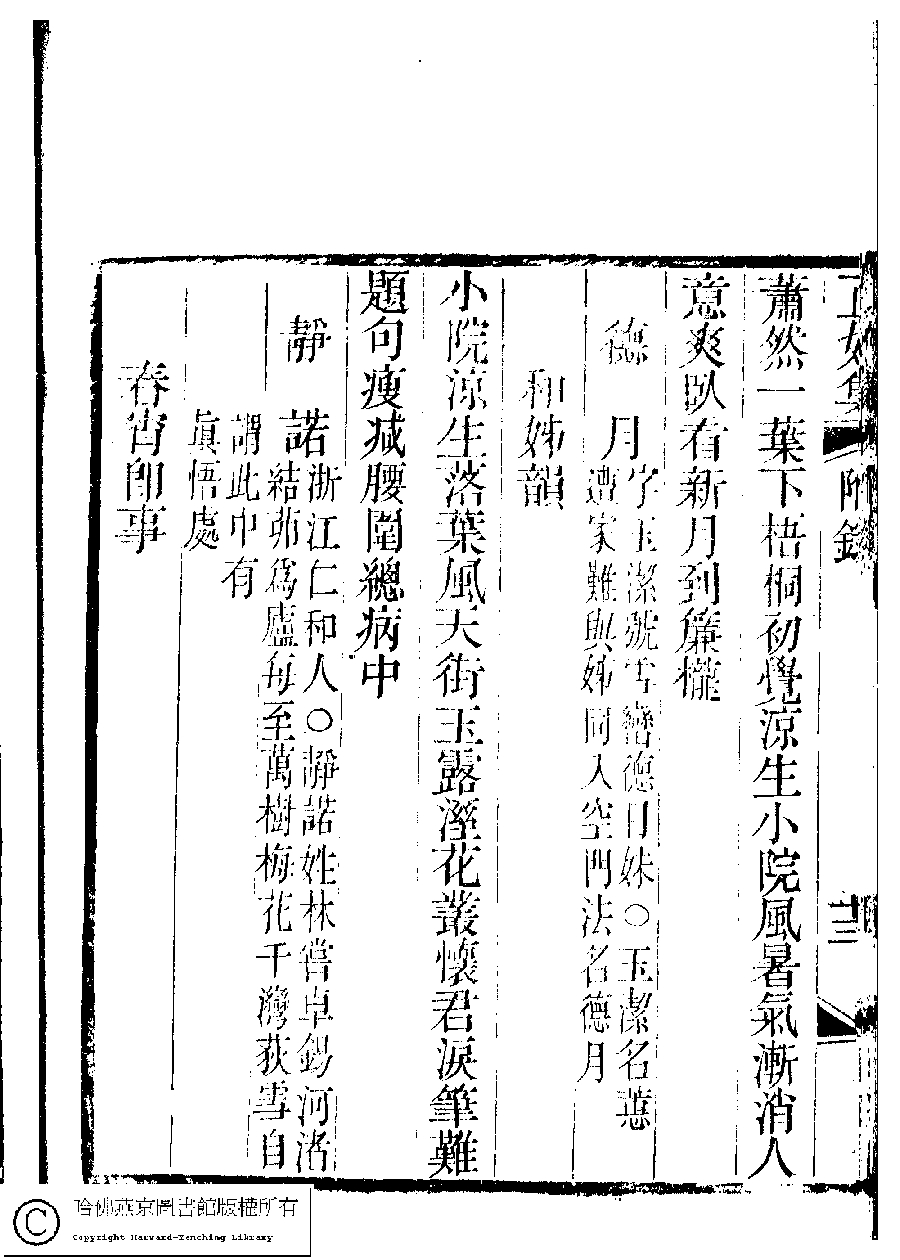 附錄
蕭然一葉下梧桐初覺涼生小院風暑氣漸消人
意爽臥看新月到簾櫳
德月
字玉潔號雪巒德日妹○玉潔名蕙
遭家難與姊同入空門法名德月
和姊韻
小院涼生落葉風天街玉露溼花叢懷君淚筆難
題句瘦减腰圍總病中
靜諾
浙江仁和人○靜諾姓林嘗卓錫河渚
結茆爲廬每至萬樹梅花千灣荻雪自
謂此中有
眞悟處
春宵即事
哈佛燕京圖書館版權所有
Copyright Harvard-Yenching Library